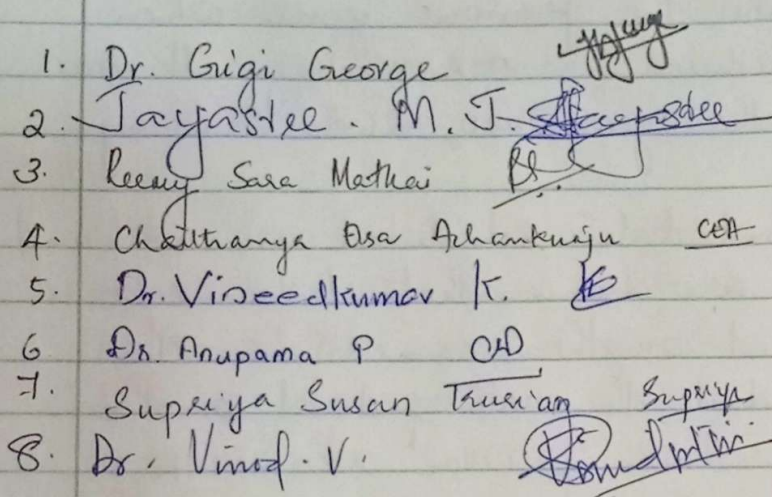 1. Dr. Gigi George
2. Jayasree. M. J. Jayasree
3. Reeny Sara Mathai
4. Chaithanya Elsa Achankunju CEA
5. Dr. Vineedkumar K.
6 Dr. Anupama P
7. Supriya Susan Kurian Supriya
8. Dr. Vinod. V.